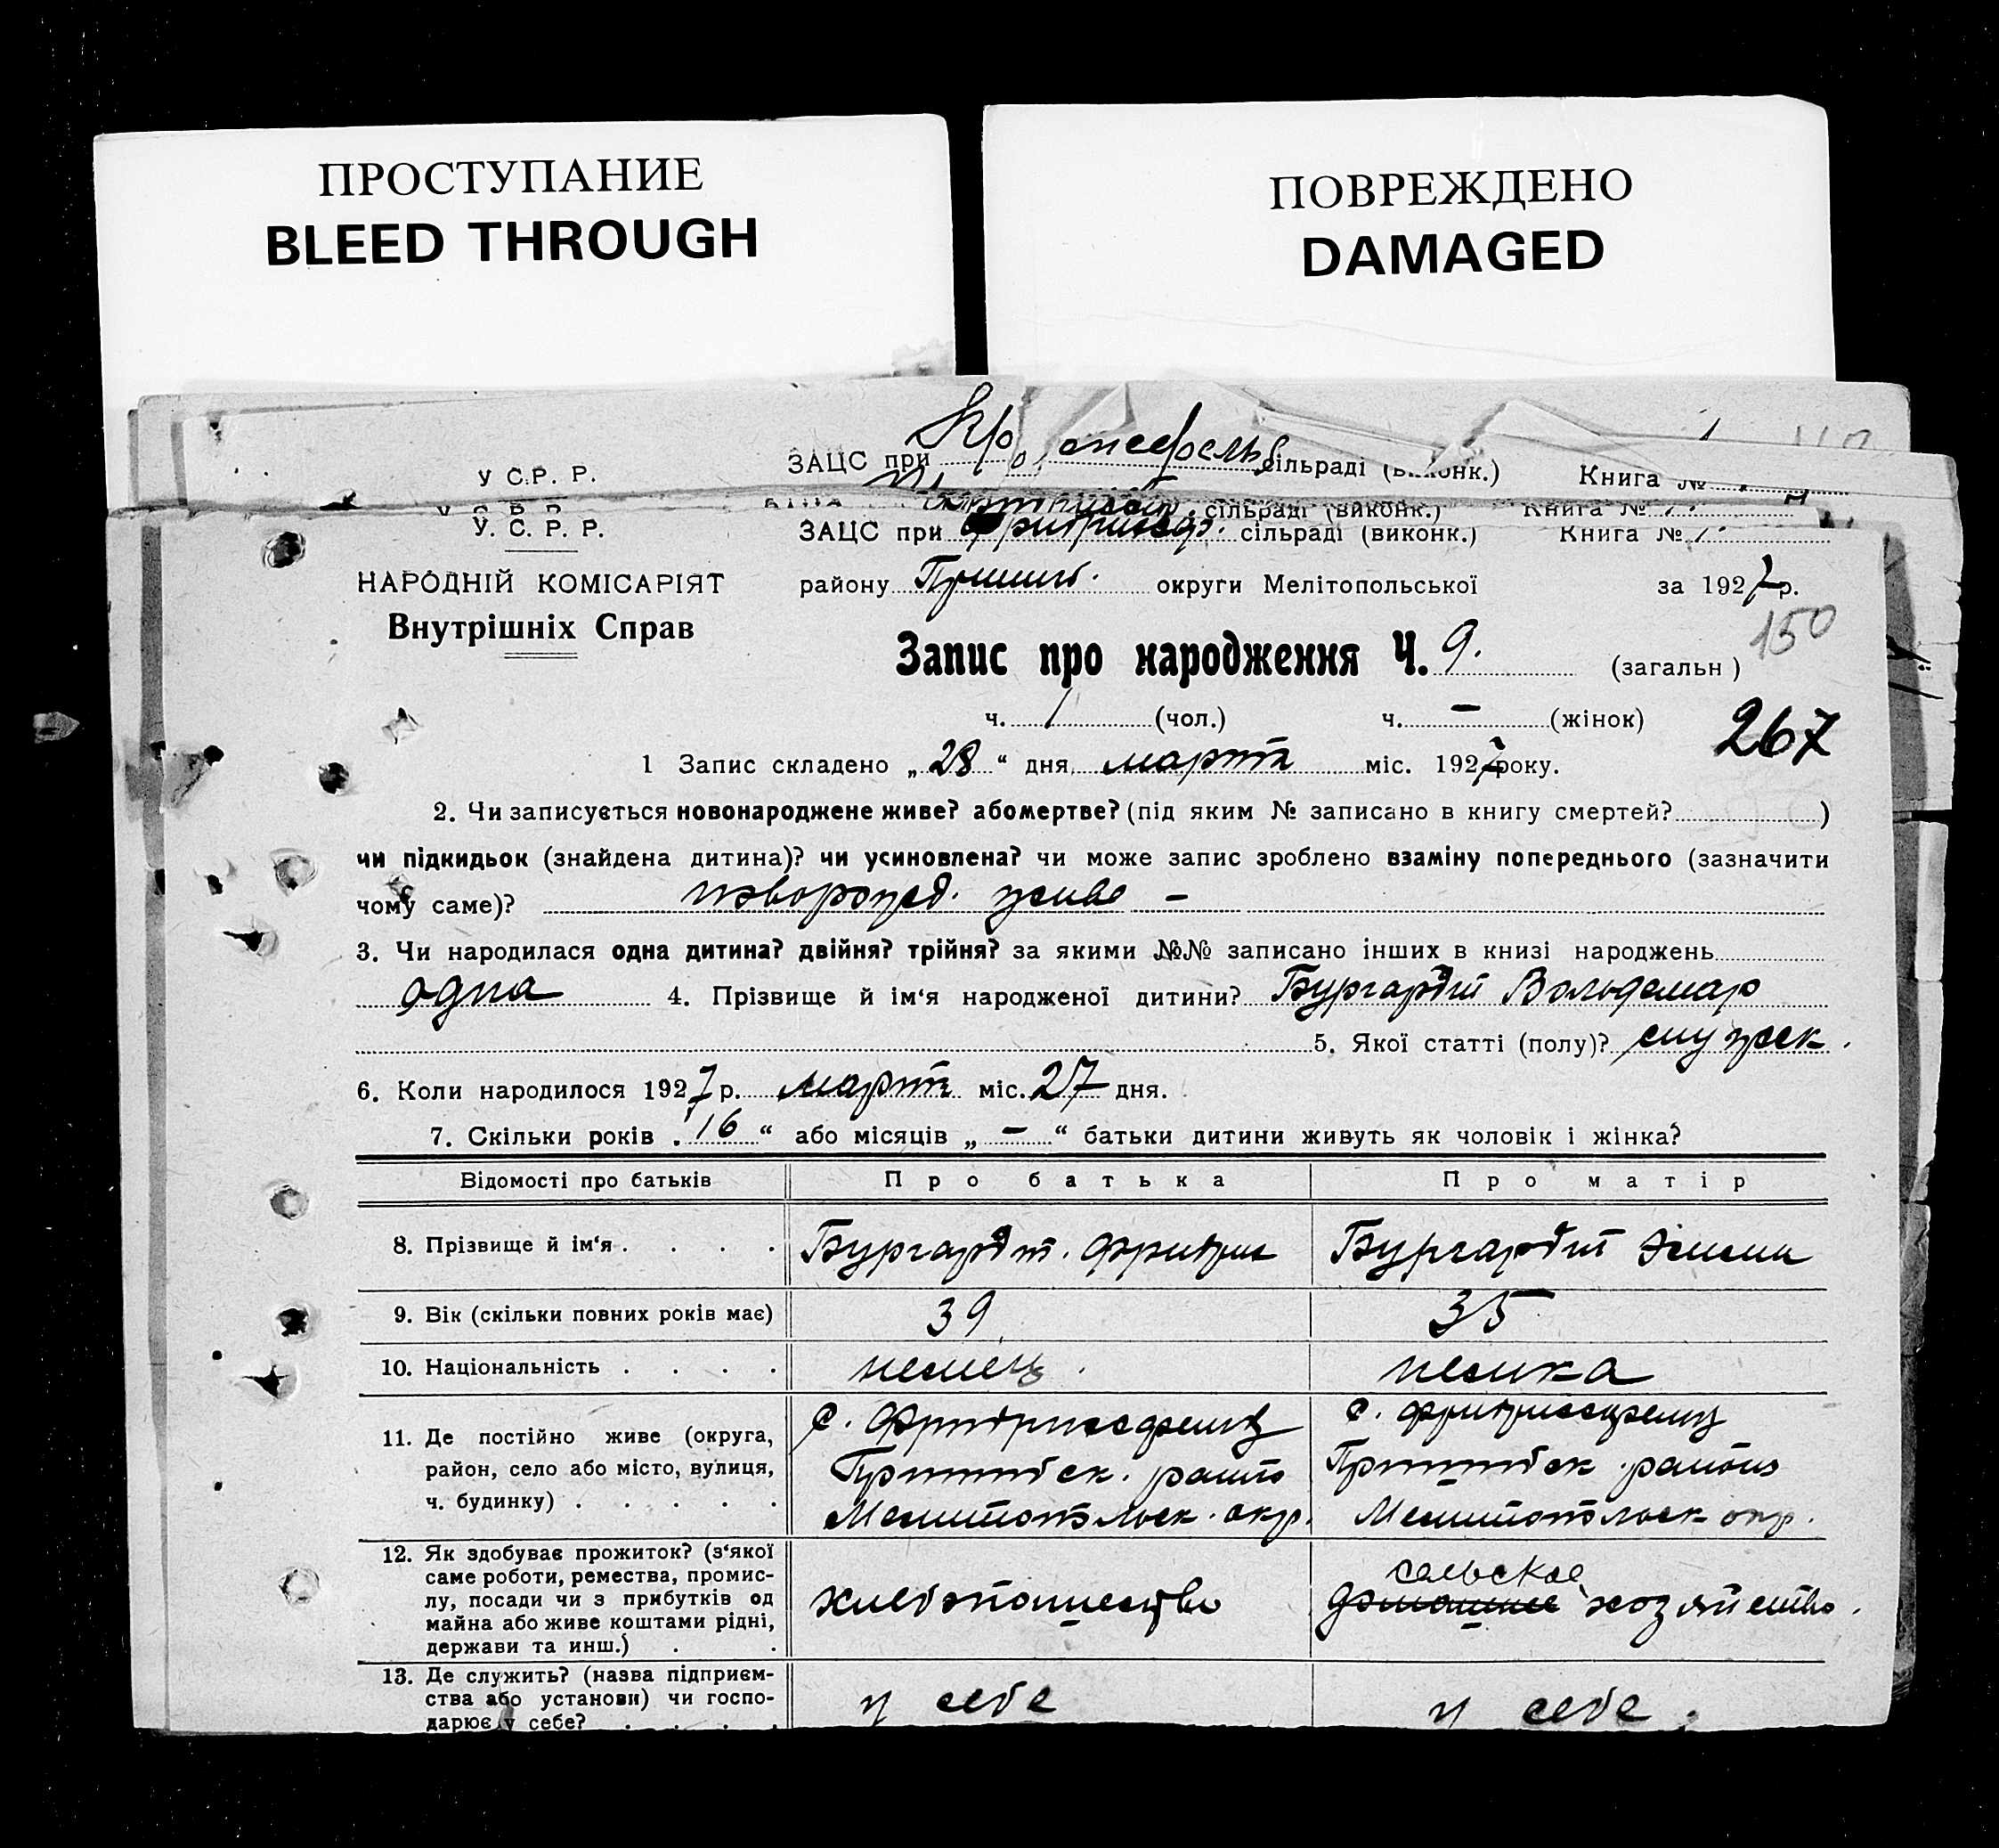 ПРОСТУПАНИЕ
BLEED THROUGH
ПОВРЕЖДЕНО
DAMAGED
У С.Р. Р. ЗАЦС при сільраді Книга №
сільраді (виконк.) Книга №
У. С. Р. Р. ЗАЦС при сільраді (виконк.) Книга № 1.
НАРОДНІЙ КОМІСАРІЯТ району округи Мелітопольської за 1927 р.
Внутрішніх Справ
150
Запис про народження Ч. 9. (загальн)
ч. 1 (чол.) ч. – (жінок)
267
1 Запис складено „28“ дня марта міс. 1927 року.
2. Чи записується новонароджене живе? або мертве? (під яким № записано в книгу смертей? )
чи підкидьок (знайдена дитина)? чи усиновлена? чи може запис зроблено взаміну попереднього (зазначити
чому саме)? живе –
3. Чи народилася одна дитина? двійня? трійня? за якими №№ записано інших в книзі народжень
одна 4. Прізвище й ім‘я народженої дитини? Бургардт Вольдемар
5. Якої статті (полу)?
6. Коли народилося 1927 р. марта міс. 27 дня.
7. Скільки років „16“ або місяців „–“ батьки дитини живуть як чоловік і жінка?
Відомості про батьків Про батька Про матір
8. Прізвище й ім‘я . . . . Бургардт Фридрих Бургардт
9. Вік (скільки повних років має) 39 35
10. Національність . . . . немец. немка
11. Де постійно живе (округа,
район, село або місто, вулиця,
ч. будинку) . . . . .
с. Фридрихсфельд
Пришибск. района
Мелитопольск. окр.
с. Фридрихсфельд
Пришибск. района
Мелитопольск окр.
12. Як здобуває прожиток? (з‘якої
саме роботи, ремества, промис-
лу, посади чи з прибутків од
майна або живе коштами рідні,
держави та инш.) . .
хлебопашество
сельское
домашнее хозяйство.
13. Де служить? (назва підприєм-
ства або установи) чи госпо-
дарює у себе? . . . .
у себе
у себе.